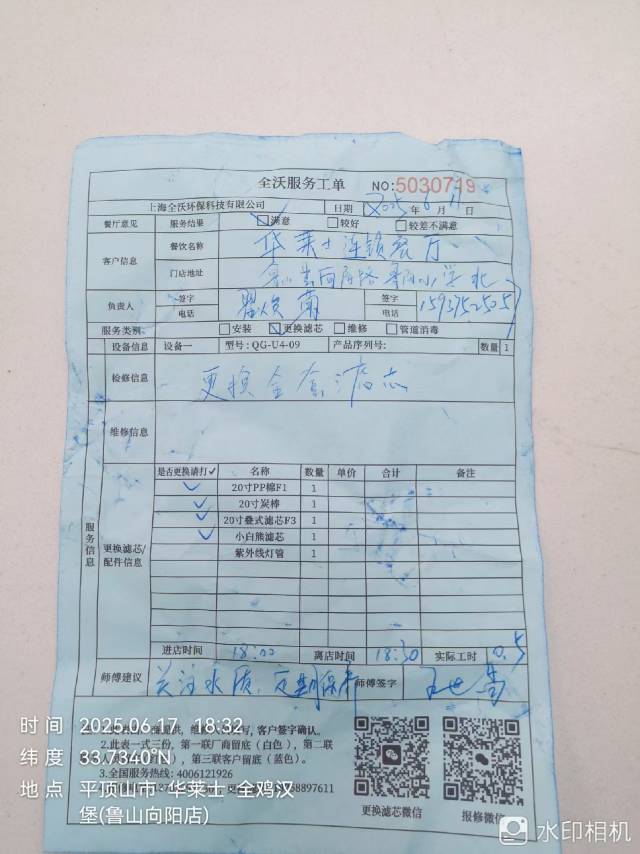 全沃服务工单 NO:5030719
上海全沃环保科技有限公司 日期 2025年6月17日
餐厅意见 服务结果 满意 较好 较差不满意
客户信息 餐饮名称 华莱士连锁餐厅
门店地址
负责人 签字 电话 签字 电话
服务类别 安装 更换滤芯 维修 管道消毒
设备信息 设备一 型号:QG-U4-09 产品序列号: 数量 1
检修信息 更换全套滤芯
维修信息
服务信息
更换滤芯/配件信息
是否更换请打✓ 名称 数量 单价 合计 备注
✓ 20寸PP棉F1 1
✓ 20寸炭棒 1
✓ 20寸叠式滤芯F3 1
✓ 小白熊滤芯 1
紫外线灯管 1
进店时间 18:00 离店时间 18:30 实际工时 0.5
师傅建议 关注水质,定期保养 师傅签字
客户签字确认。
2.此表一式三份,第一联厂商留底(白色),第二联
第三联客户留底(蓝色)。
3.全国服务热线:4006121926
更换滤芯微信 报修微信
时间 2025.06.17 18:32
纬度 33.7340°N
地点 平顶山市 华莱士·全鸡汉
堡(鲁山向阳店)
水印相机